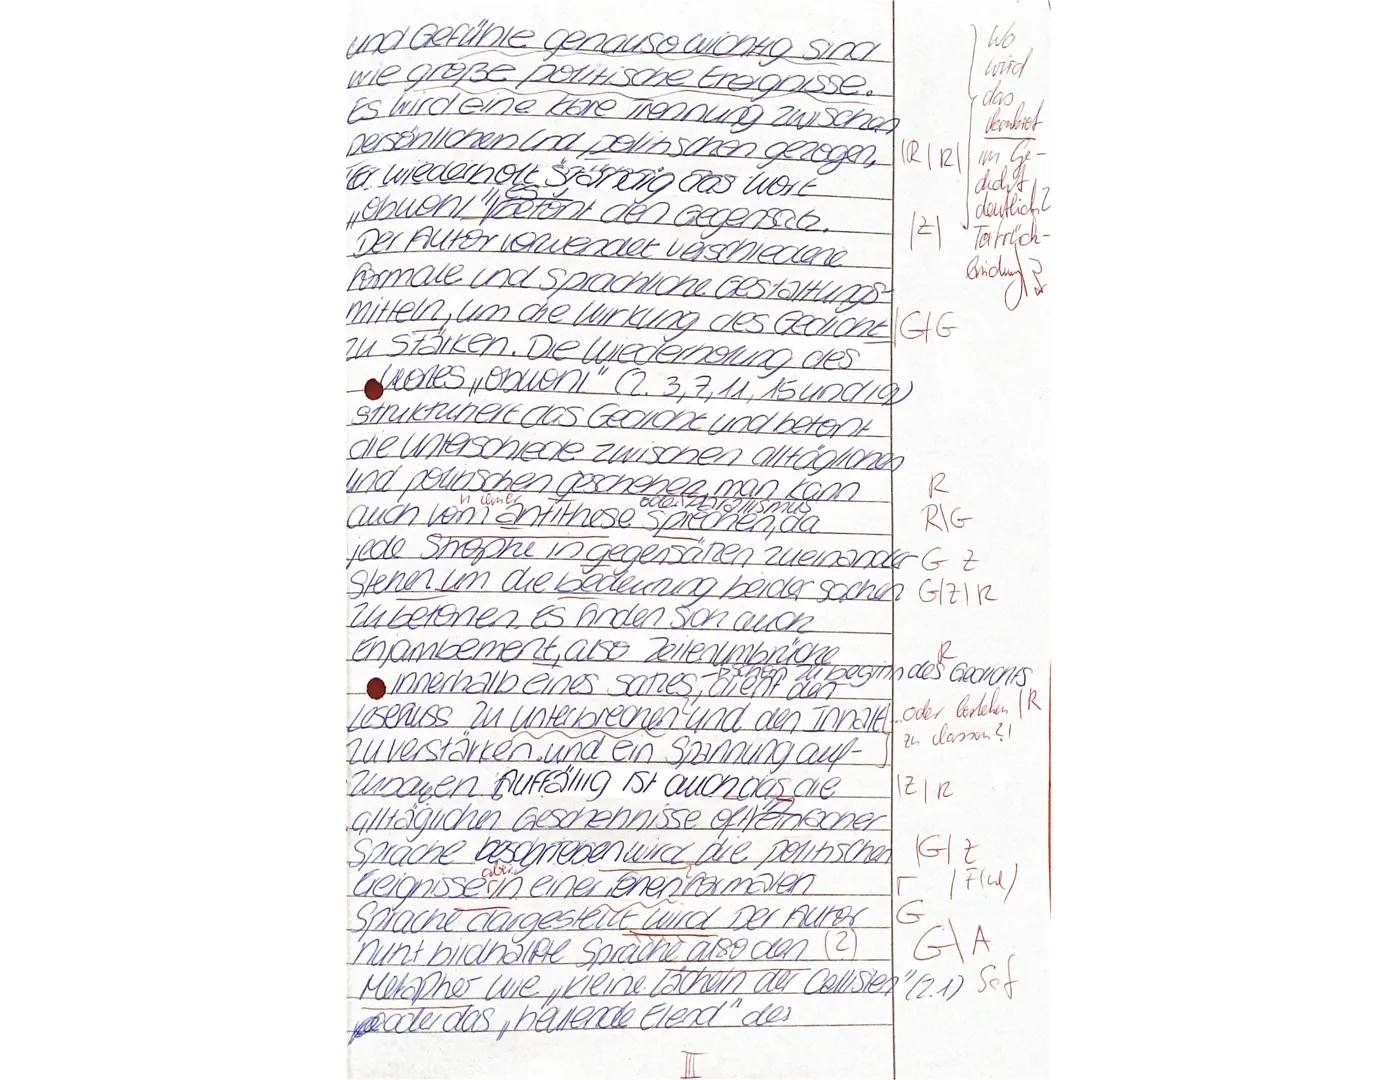 und Gefühle genauso wichtig sind
wie große politische Ereignisse.
Es wird eine klare Trennung zwischen
persönlichen und politischen gezogen,
Er wiederholt ständig das Wort
„obwohl“ es betont den Gegensatz.
Der Autor verwendet verschiedene
formale und sprachliche Gestaltungs-
mitteln, um die Wirkung des Gedicht
zu stärken. Die Wiederholung des
Wortes „obwohl“ (Z. 3, 7, 11, 15 und 19)
strukturiert das Gedicht und betont
die Unterschiede zwischen alltäglichen
und politischen geschehen, man kann
n einer oder Parallelismus
auch vom antithese sprechen, da
jede Strophe in gegensätzen zueinander
stehen um die bedeutung beider sachen
zu betonen. Es finden sich auch
Enjambement, also Zeilenumbrüche
schon zu beginn des Gedichts
innerhalb eines satzes, dient den
Lesefluss zu unterbrechen und den Inhalt
zu verstärken. und ein Spannung auf-
zubauen. Auffällig ist auch das die
alltäglichen Geschehnisse oft in einfacher
Sprache beschrieben wird die politischen
aber
Ereignisse in einer formalen
Sprache dargestellt wird Der Autor
nutzt bildhafte Sprache also den (2)
Metapher wie „kleine lächeln der Cellisten“ (Z.1)
oder das „heulende Elend“ des
Wo
wird
das
konkret
im Ge-
dicht
deutlich?
Textrück-
bindung?
|R|R|
|Z|
|G|G
R
R|G
G Z
G|Z|R
R
...oder bestehen |R
zu lassen?!
|Z|R
|G|Z
G
G|A
III